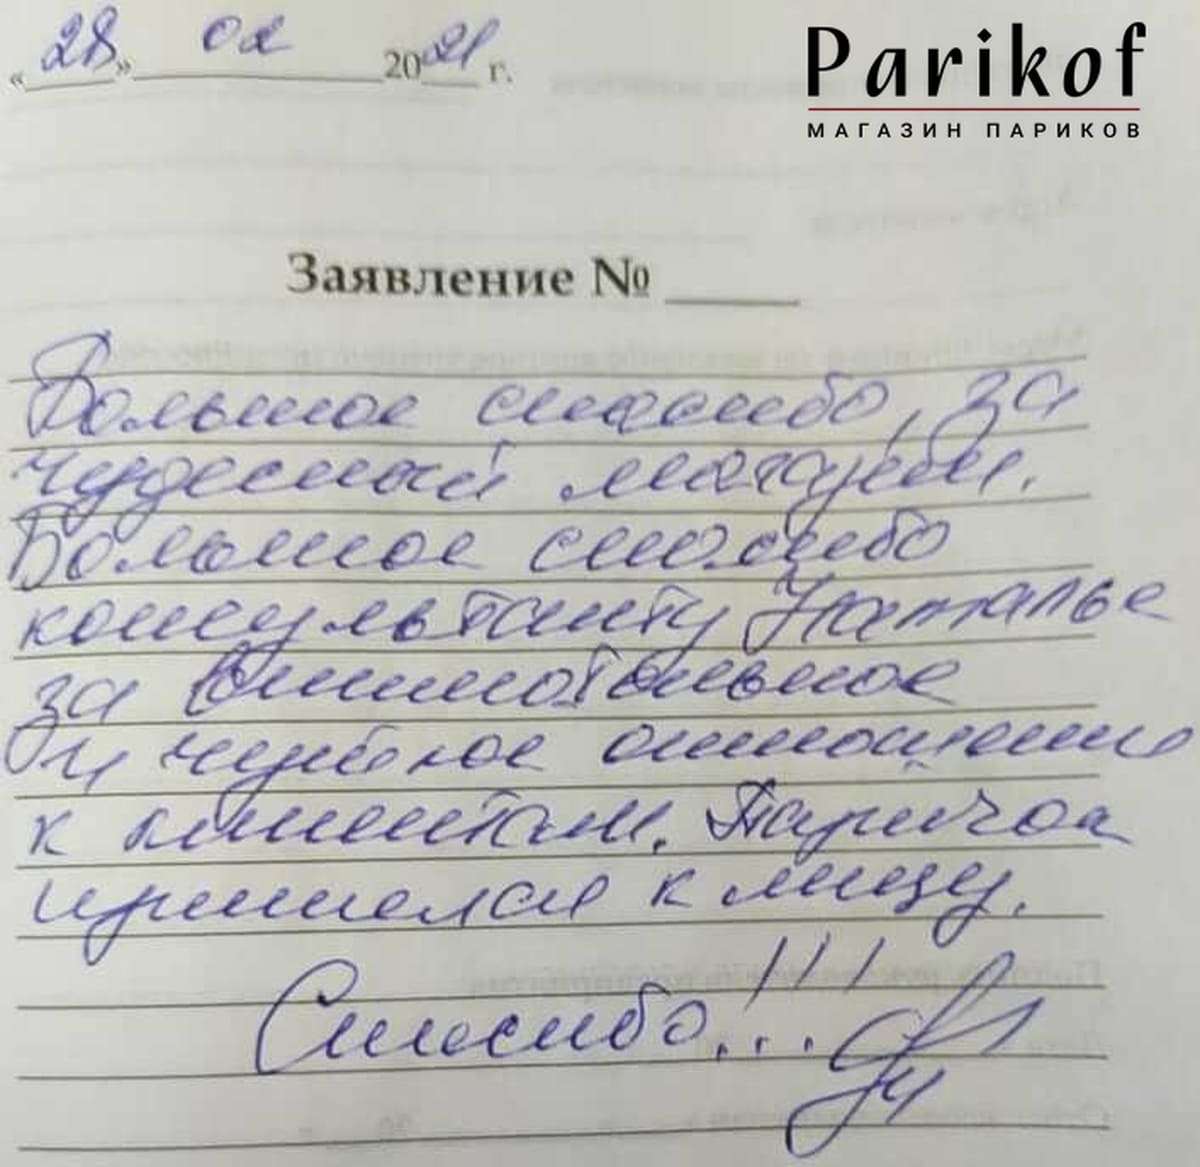 «28» 02 2021 г.
Parikof
МАГАЗИН ПАРИКОВ
Заявление № ____
Большое спасибо, за
чудесный магазин.
Большое спасибо
консультанту Наталье
за внимательное
и чуткое отношение
к клиентам. Паричок
пришелся к лицу.
Спасибо!!!